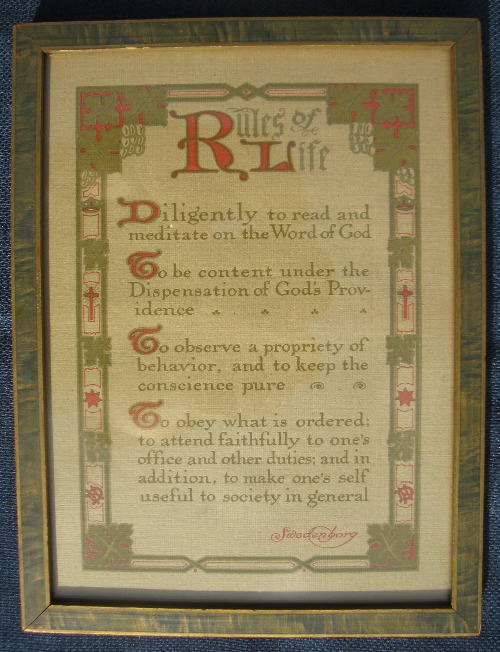 Rules of
Life
Diligently to read and
meditate on the Word of God
To be content under the
Dispensation of God's Prov-
idence
To observe a propriety of
behavior, and to keep the
conscience pure
To obey what is ordered;
to attend faithfully to one's
office and other duties; and in
addition, to make one's self
useful to society in general
Swedenborg